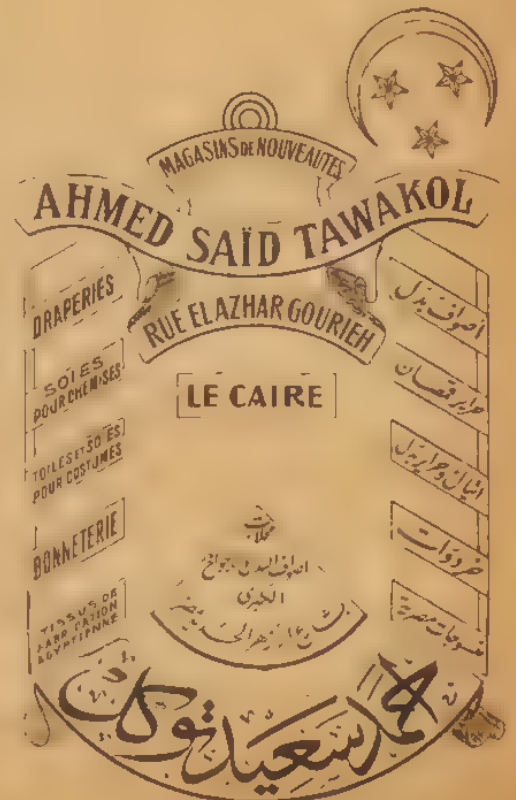 MAGASINS DE NOUVEAUTES
AHMED SAÏD TAWAKOL
RUE EL AZHAR GOURIEH
LE CAIRE
DRAPERIES
SOIES
POUR CHEMISES
TOILES ET SOIES
POUR COSTUMES
BONNETERIE
TISSUS DE
FABRICATION
EGYPTIENNE
اصواف بدل
حراير قمصان
اتيال وحراير بدل
خردوات
منسوجات مصرية
محلات
اصواف البدل وجواخ
الكبرى
بشارع الازهر الجديد بمصر
احمد سعيد توكل